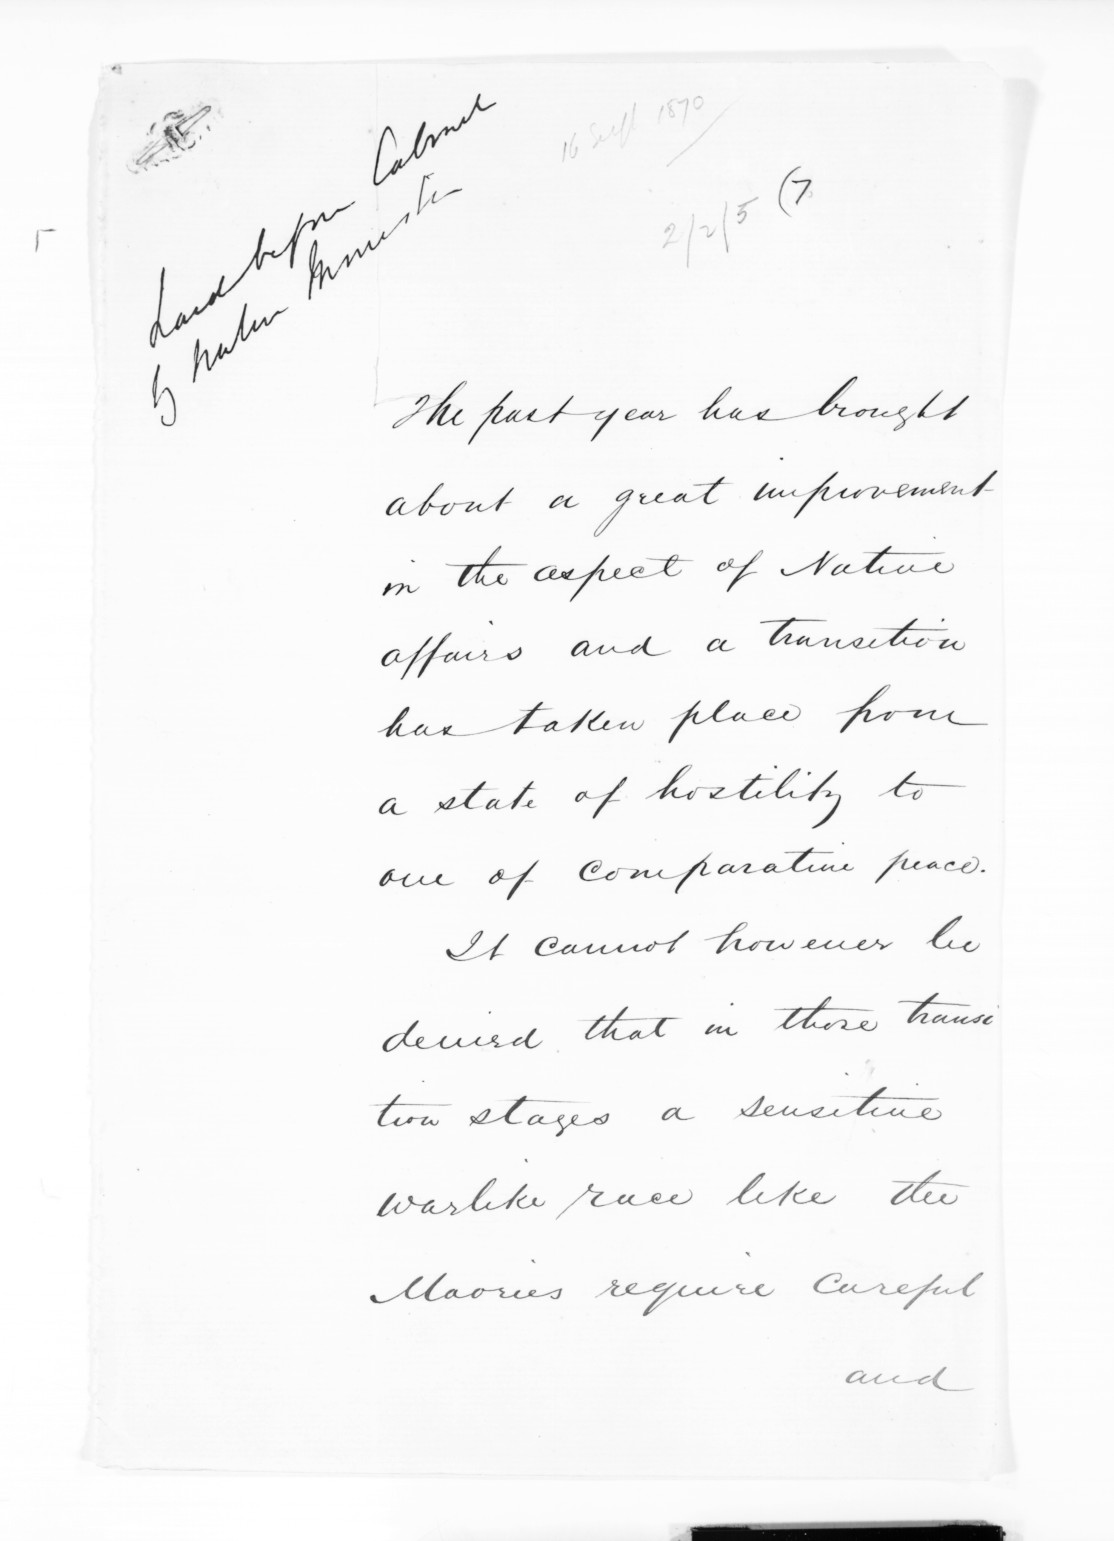 Laid before Cabinet
by Native Minister
16 Sept 1870
2/2/5 (7)
The past year has brought
about a great improvement
in the aspect of Native
affairs and a transition
has taken place from
a state of hostility to
one of comparative peace.
It cannot however be
denied that in those transi
tion stages a sensitive
warlike race like the
Maories require careful
and